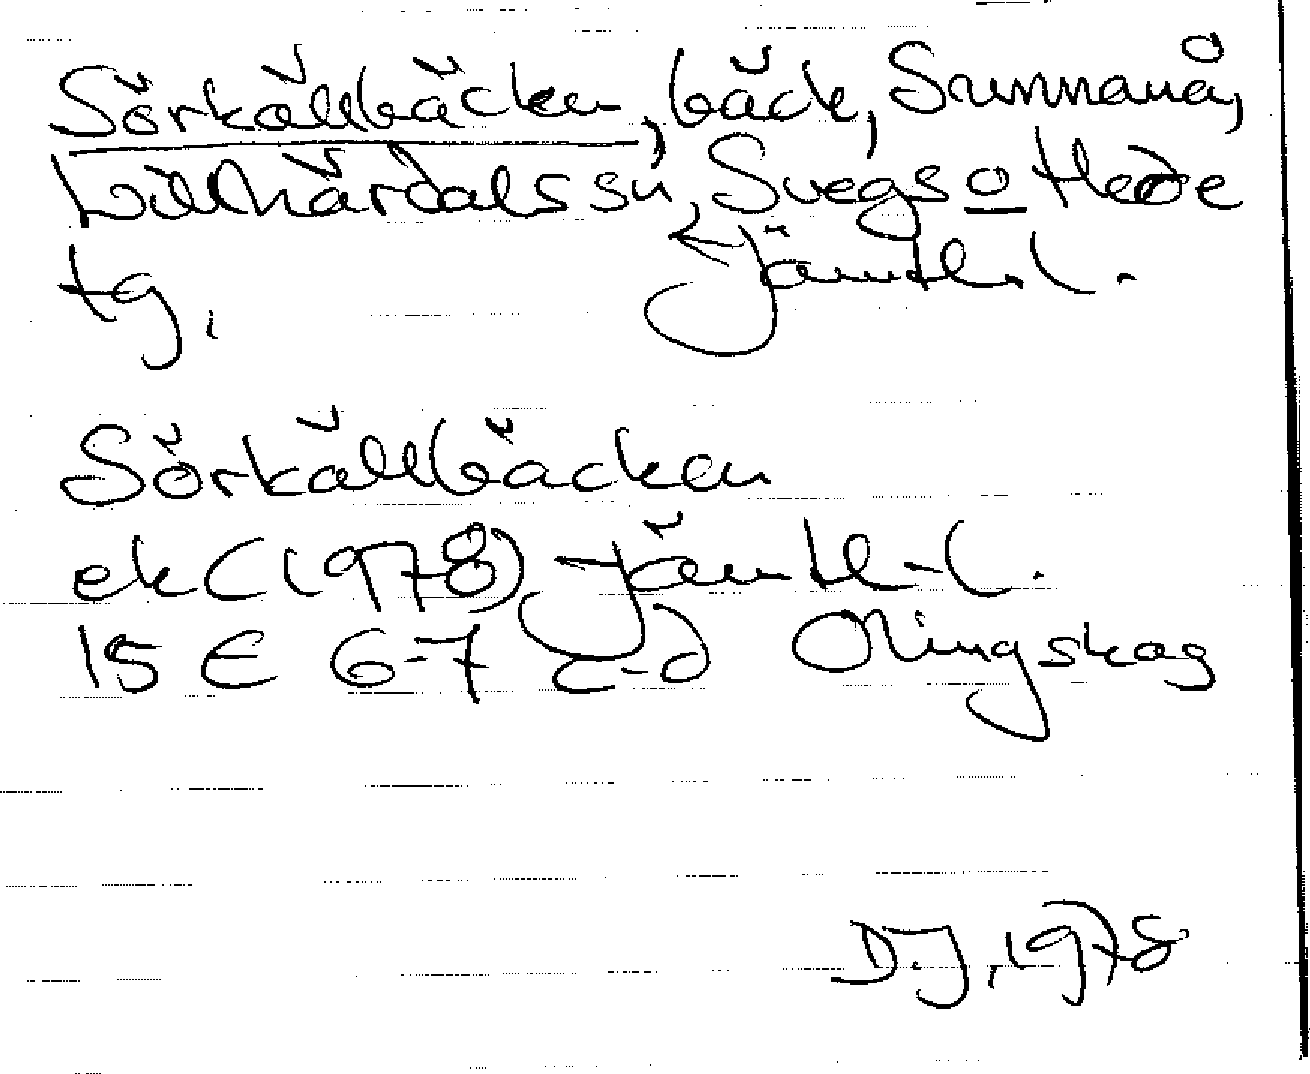 Sörkällbäcken, bäck, Sunnanå,
Lillhärdals sn, Svegs o Hede
tg. Jämtl. l.
Sörkällbäcken
ek (1978) Jämtl-l.
15 E 6-7 c-d Olingskog
D.J, 1978